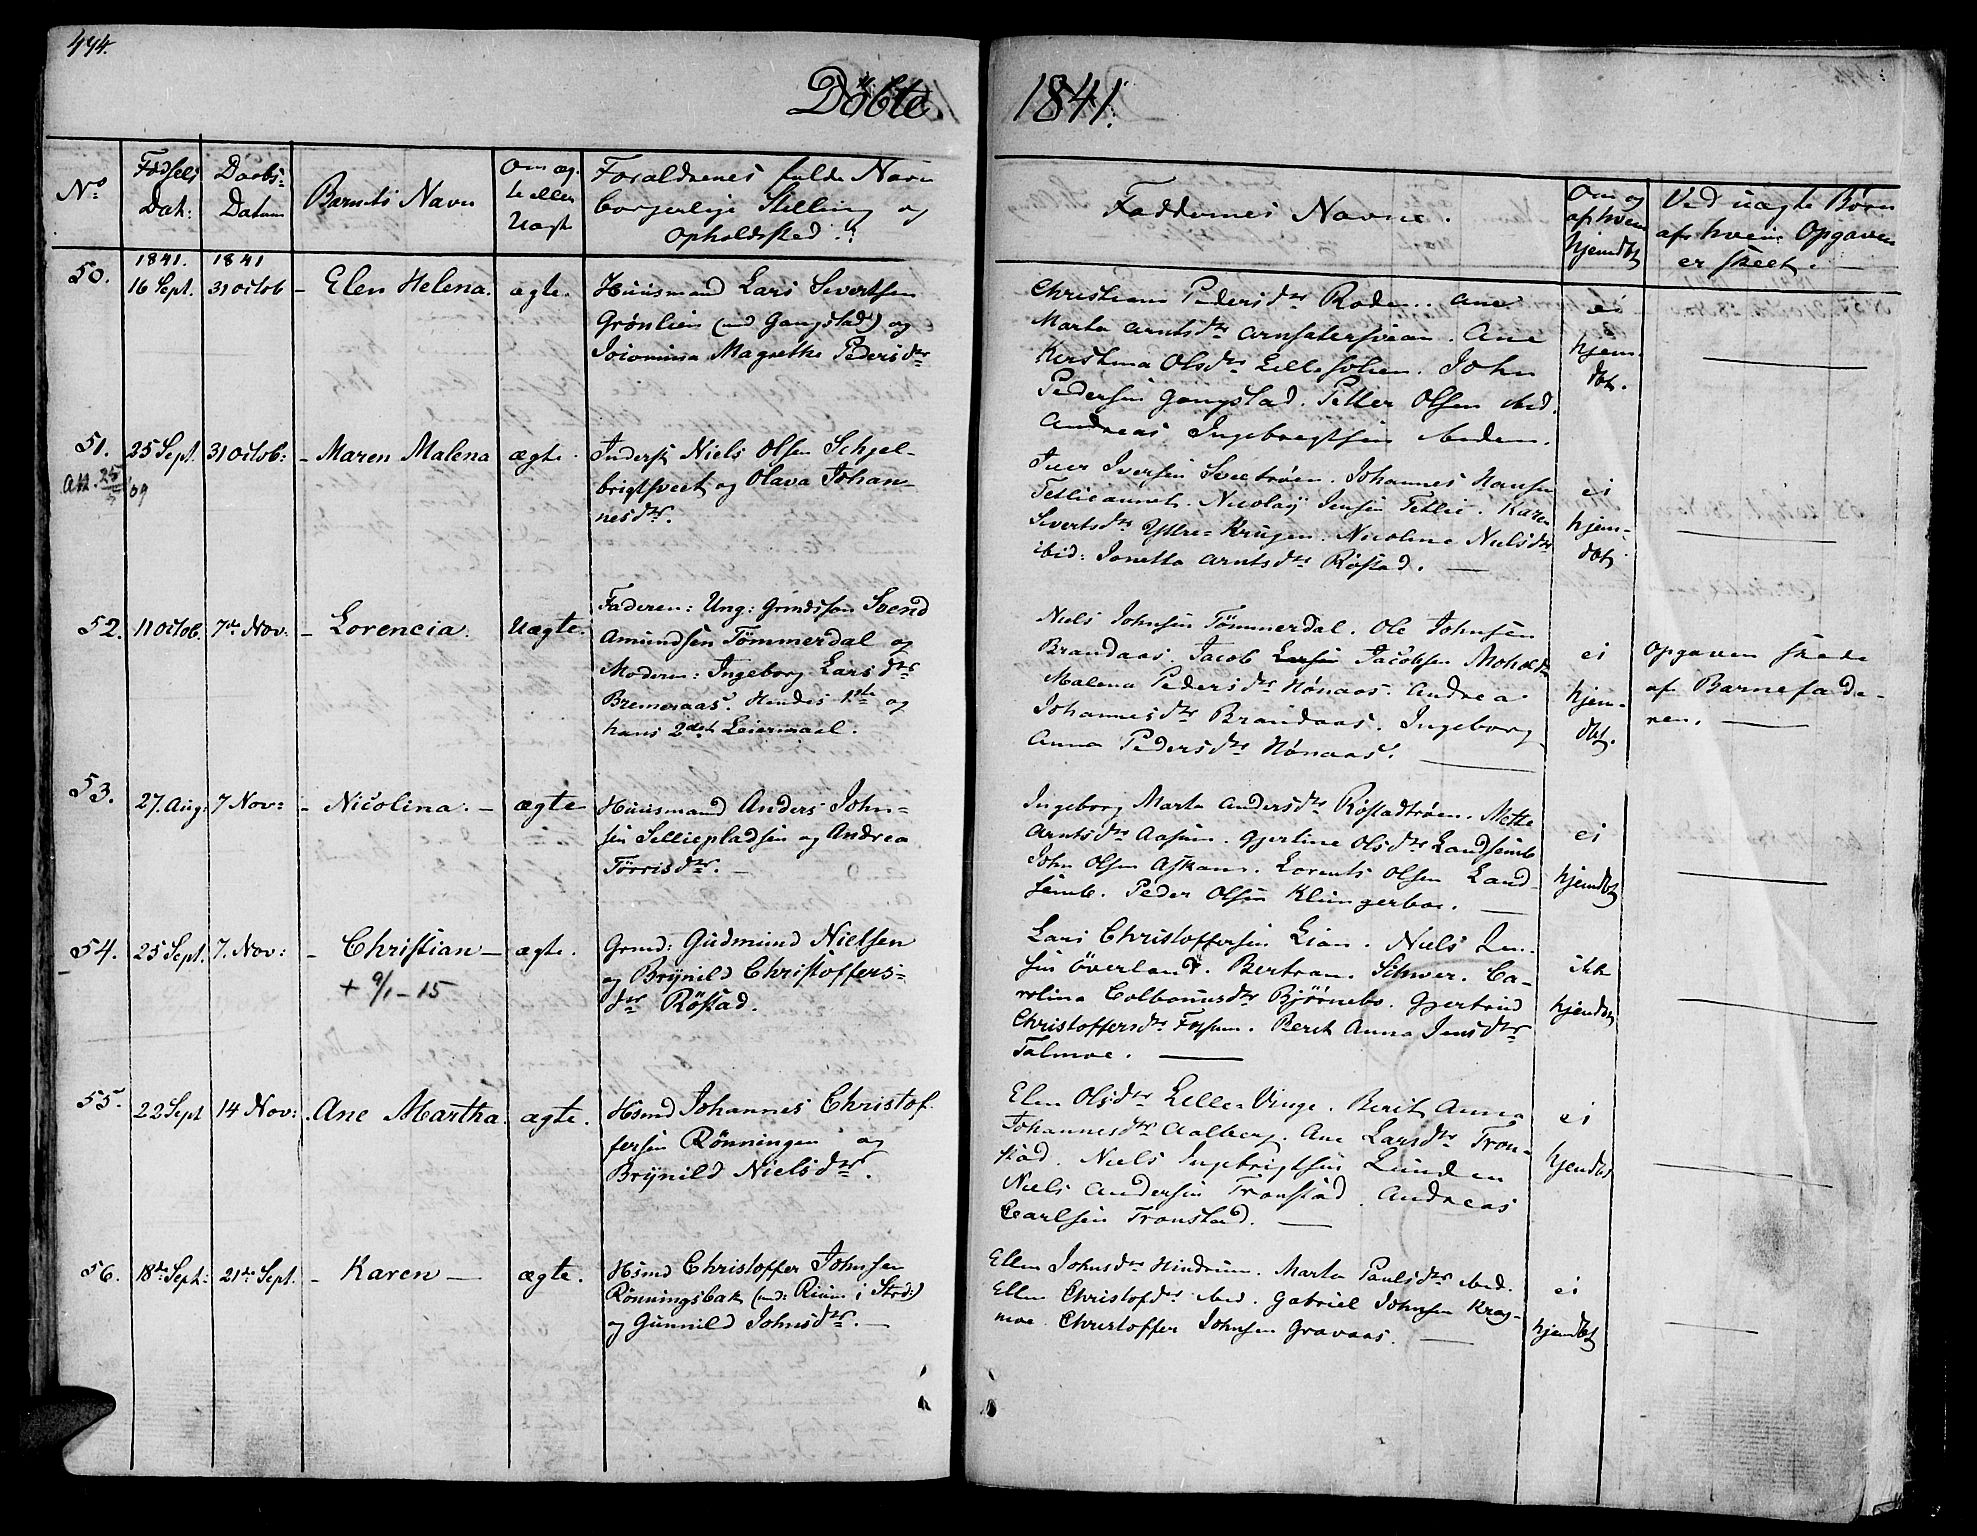 494.
Döbte 1841.
No
Fødsels Dat:
Daabs- Datum
Barnets Navn
Om æg- te eller Uægt
Forældrenes fulde Navn borgerlige Stilling og Opholdssted.
Faddernes Navne.
Om og af hvem hjemdøbt
Ved uægte Børn af hvem Opgaven er skeet.
50.
1841. 16 Sept.
1841 31 Octob
Elen Helena.
ægte.
Huusmand Lars Sivertsen
Grönlien (und Gangstad) og
Magrethe Pedersdtr
Christiana Pedersdtr Roden. Ane
Marta Arntsdtr. Ane
Kerstina Olsdtr Lillesolien. John
Pedersen Gangstad. Petter Olsen ibid.
Andreas Ingebrigtsen ibidem.
ei hjem- døt.
51.
25 Sept.
31 Octob:
Maren Malena
ægte.
Inderst Niels Olsen Schjel-
brigtsveet og Olava Johan-
nesdtr.
Att. 25/5 09
Iver Iversen Sveetrøen. Johannes Hansen
Tetlieaunet. Nicolaÿ Jensen Tetlie. Karen
Sivertsdtr Yttre-Krügen. Nicolina Nielsdtr
ibid: Jonetta Arntsdtr Röstad.
ei hjem- døt
52.
11 Octob.
7de Nov:
Lorencia.
Uægte.
Faderen: Ung: Grmdssøn Svend
Amundsen Tömmerdal og
Moderen: Ingeborg Larsdtr
Bremeraas. Hendes 1ste og
hans 2det Leiermaal.
Niels Johnsen Tömmerdal. Ole Johnsen
Brandaas. Jacob Larsen Jacobsen Moholdt
Malena Pedersdtr Hønaas. Andrea
Johannesdtr Brandaas. Ingeborg
Anna Pedersdtr Hønaas.
ei hjem- døt.
Opgaven skede
af Barnefade-
ren.
53.
27. Aug:
7 Nov:
Nicolina.
ægte
Huusmand Anders John-
sen Selliepladsen og Andrea
Törrisdtr.
Ingeborg Marta Andersdtr Röstadtrøen. Mette
Arntsdtr Aasum. Gjertine Olsdtr Landsemb
John Olsen Askam. Lorents Olsen Land-
semb. Peder Olsen Klüngerboe.
ei hjemdøt
54.
25 Sept.
7. Nov:
Christian
ægte.
Grmd: Gudmund Nielsen
og Brÿnild Christoffers-
dtr Röstad.
+ 9/1-15
Lars Christoffersen Lian. Niels Jen-
sen Överland. Bertran Schwer. Ca-
rolina Colbanusdtr Bjørnebo. Gjertrud
Christoffersdtr Fossum. Berit Anna Jensdtr
Talmoe.
ikke hjemdøt
55.
22 Sept
14 Nov:
Ane Martha.
ægte.
Hsmd Johannes Christof-
fersen Rönningen og
Brÿnild Nielsdtr.
Elen Olsdtr Lille-Vinge. Berit Anna
Johannesdtr Aalberg. Ane Larsdtr Tron-
stad. Niels Ingebrigtsen Lunden
Niels Andersen Tronstad. Andreas
Carlsen Tronstad.
ei hjemdøt
56.
18de Sept:
21de Sept.
Karen
ægte.
Hsmd Christoffer Johnsen
Rönningsbak (und: Rium i Strd:)
og Gunnild Johnsdtr.
Ellen Johnsdtr Hindrum. Marta Paulsdtr ibid.
Ellen Christofdtr ibid. Gabriel Johnsen Krog-
moe. Christoffer Johnsen Gravaas.
ei hjemdøt